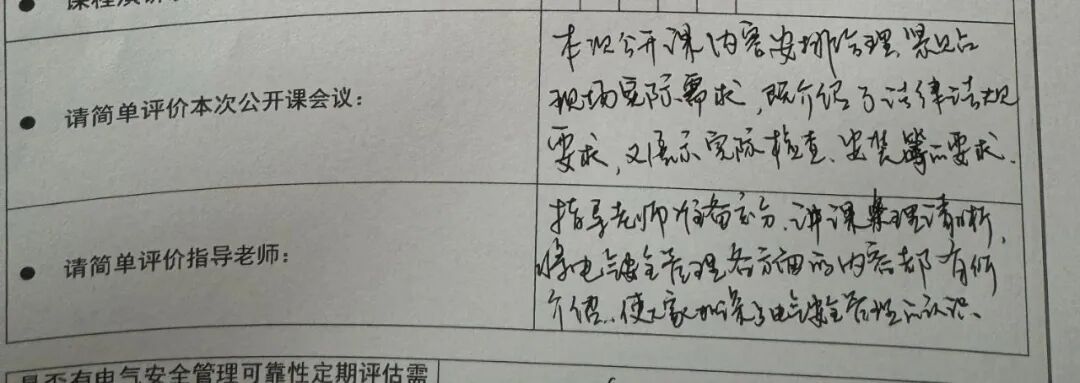 请简单评价本次公开课会议：
本次公开课内容安排合理，紧贴
现场实际需求，既介绍了法律法规
要求，又展示实际检查、安装等的要求.
请简单评价指导老师：
指导老师准备充分，讲课条理清晰，
将电气安全管理各方面的内容都有所
介绍，使大家加深了电气安全管理的认识。
是否有电气安全管理可靠性定期评估需